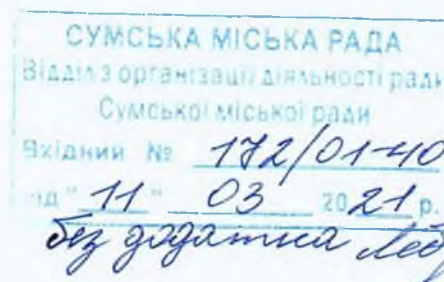 СУМСЬКА МІСЬКА РАДА
Відділ з організації діяльності ради
Сумської міської ради
Вхідний № 172/01-40
від "11" 03 2021 р.
без додатка